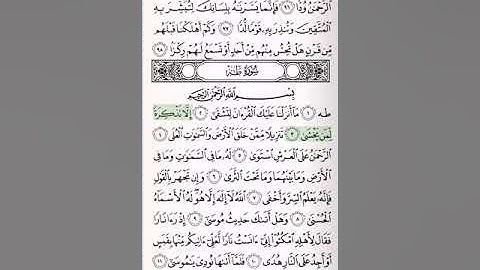 ٱلرَّحۡمَٰنُ وُدّٗا ٩٦ فَإِنَّمَا يَسَّرۡنَٰهُ بِلِسَانِكَ لِتُبَشِّرَ بِهِ
ٱلۡمُتَّقِينَ وَتُنذِرَ بِهِۦ قَوۡمٗا لُّدّٗا ٩٧ وَكَمۡ أَهۡلَكۡنَا قَبۡلَهُم
مِّن قَرۡنٍ هَلۡ تُحِسُّ مِنۡهُم مِّنۡ أَحَدٍ أَوۡ تَسۡمَعُ لَهُمۡ رِكۡزَۢا ٩٨
سُورَةُ طه
بِسۡمِ ٱللَّهِ ٱلرَّحۡمَٰنِ ٱلرَّحِيمِ
طه ١ مَآ أَنزَلۡنَا عَلَيۡكَ ٱلۡقُرۡءَانَ لِتَشۡقَىٰٓ ٢ إِلَّا تَذۡكِرَةٗ
لِّمَن يَخۡشَىٰ ٣ تَنزِيلٗا مِّمَّنۡ خَلَقَ ٱلۡأَرۡضَ وَٱلسَّمَٰوَٰتِ ٱلۡعُلَى ٤
ٱلرَّحۡمَٰنُ عَلَى ٱلۡعَرۡشِ ٱسۡتَوَىٰ ٥ لَهُۥ مَا فِي ٱلسَّمَٰوَٰتِ وَمَا فِي
ٱلۡأَرۡضِ وَمَا بَيۡنَهُمَا وَمَا تَحۡتَ ٱلثَّرَىٰ ٦ وَإِن تَجۡهَرۡ بِٱلۡقَوۡلِ
فَإِنَّهُۥ يَعۡلَمُ ٱلسِّرَّ وَأَخۡفَى ٧ ٱللَّهُ لَآ إِلَٰهَ إِلَّا هُوَۖ لَهُ ٱلۡأَسۡمَآءُ
ٱلۡحُسۡنَىٰ ٨ وَهَلۡ أَتَىٰكَ حَدِيثُ مُوسَىٰٓ ٩ إِذۡ رَءَا نَارٗا
فَقَالَ لِأَهۡلِهِ ٱمۡكُثُوٓاْ إِنِّيٓ ءَانَسۡتُ نَارٗا لَّعَلِّيٓ ءَاتِيكُم مِّنۡهَا بِقَبَسٍ
أَوۡ أَجِدُ عَلَى ٱلنَّارِ هُدٗى ١٠ فَلَمَّآ أَتَىٰهَا نُودِيَ يَٰمُوسَىٰٓ ١١